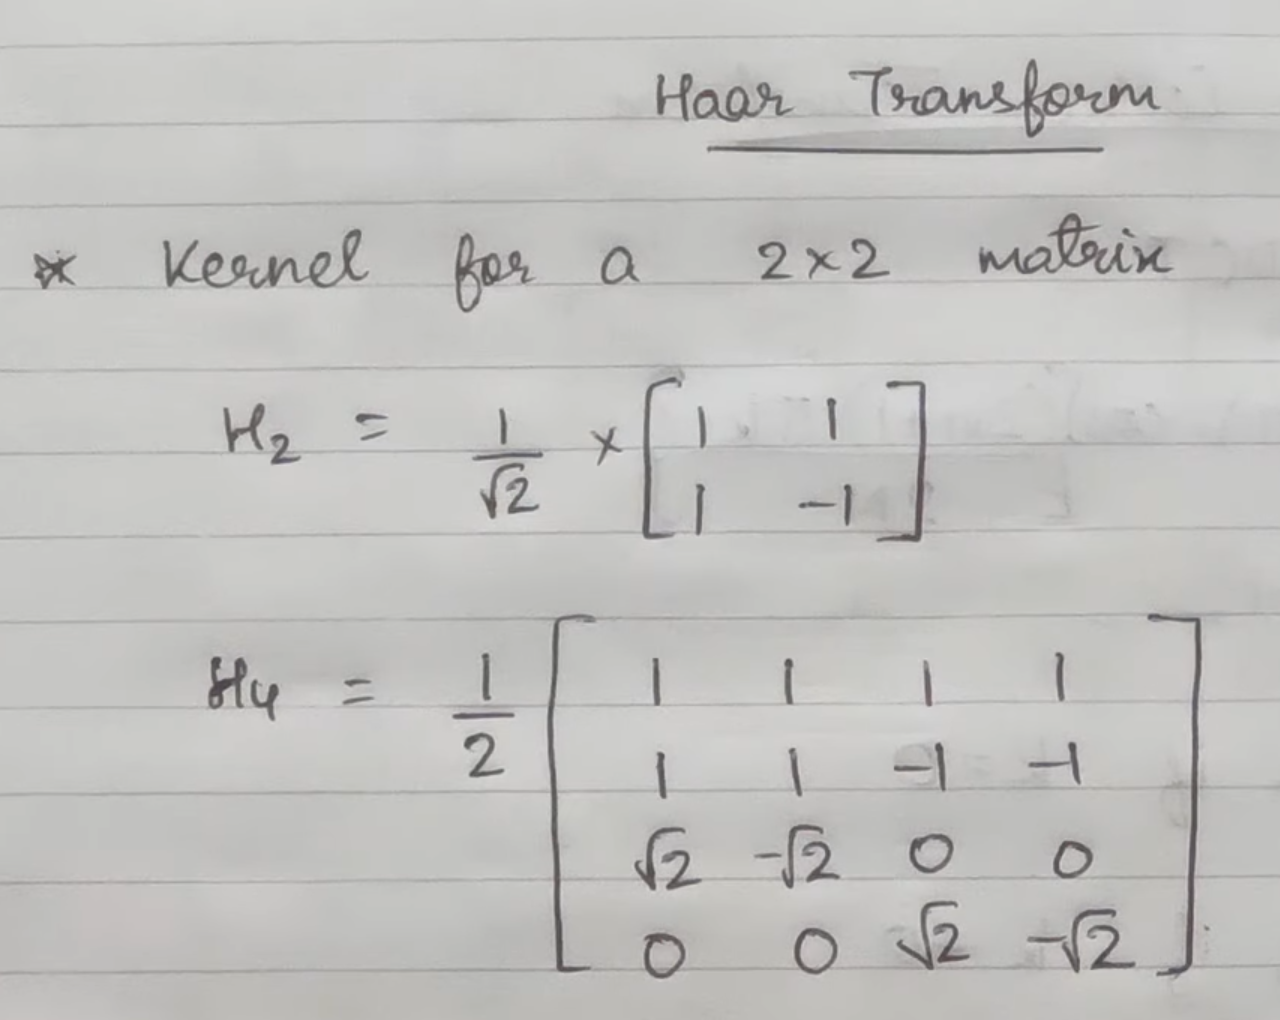 Haar Transform
* Kernel for a 2×2 matrix
H₂ = 1/√2 × [1 1
1 -1]
H₄ = 1/2 [1 1 1 1
1 1 -1 -1
√2 -√2 0 0
0 0 √2 -√2]